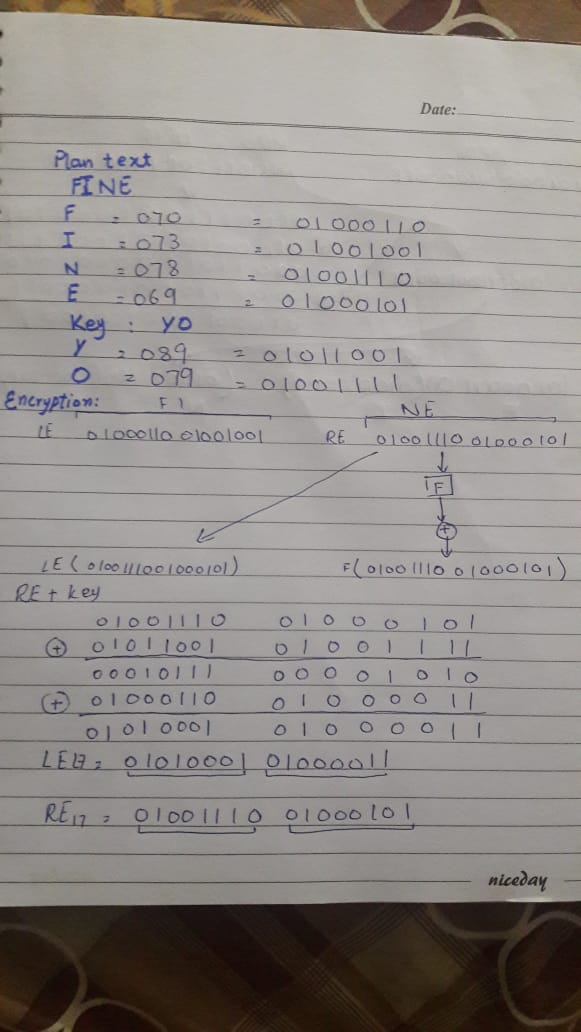 Date:
Plan text
FINE
F = 070 = 01000110
I = 073 = 01001001
N = 078 = 01001110
E = 069 = 01000101
Key : YO
Y = 089 = 01011001
O = 079 = 01001111
Encryption: FI NE
LE 01000110 01001001 RE 01001110 01000101
F
+
LE (0100111001000101) F(01001110 01000101)
RE + key
01001110 01000101
+ 01011001 01001111
00010111 00001010
+ 01000110 01000011
01010001 01000011
LE17 = 01010001 01000011
RE17 = 01001110 01000101
niceday